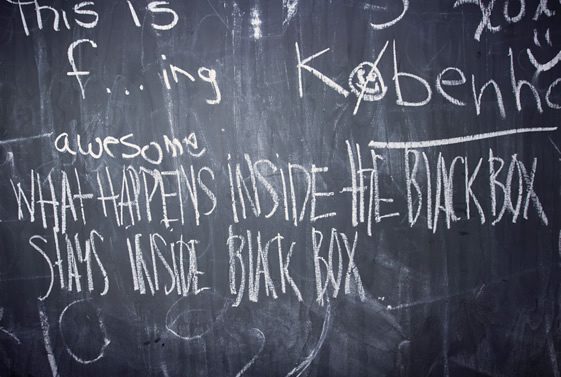 This is
f...ing
awesome
Københ
WHAT HAPPENS INSIDE THE BLACK BOX
STAYS INSIDE BLACK BOX